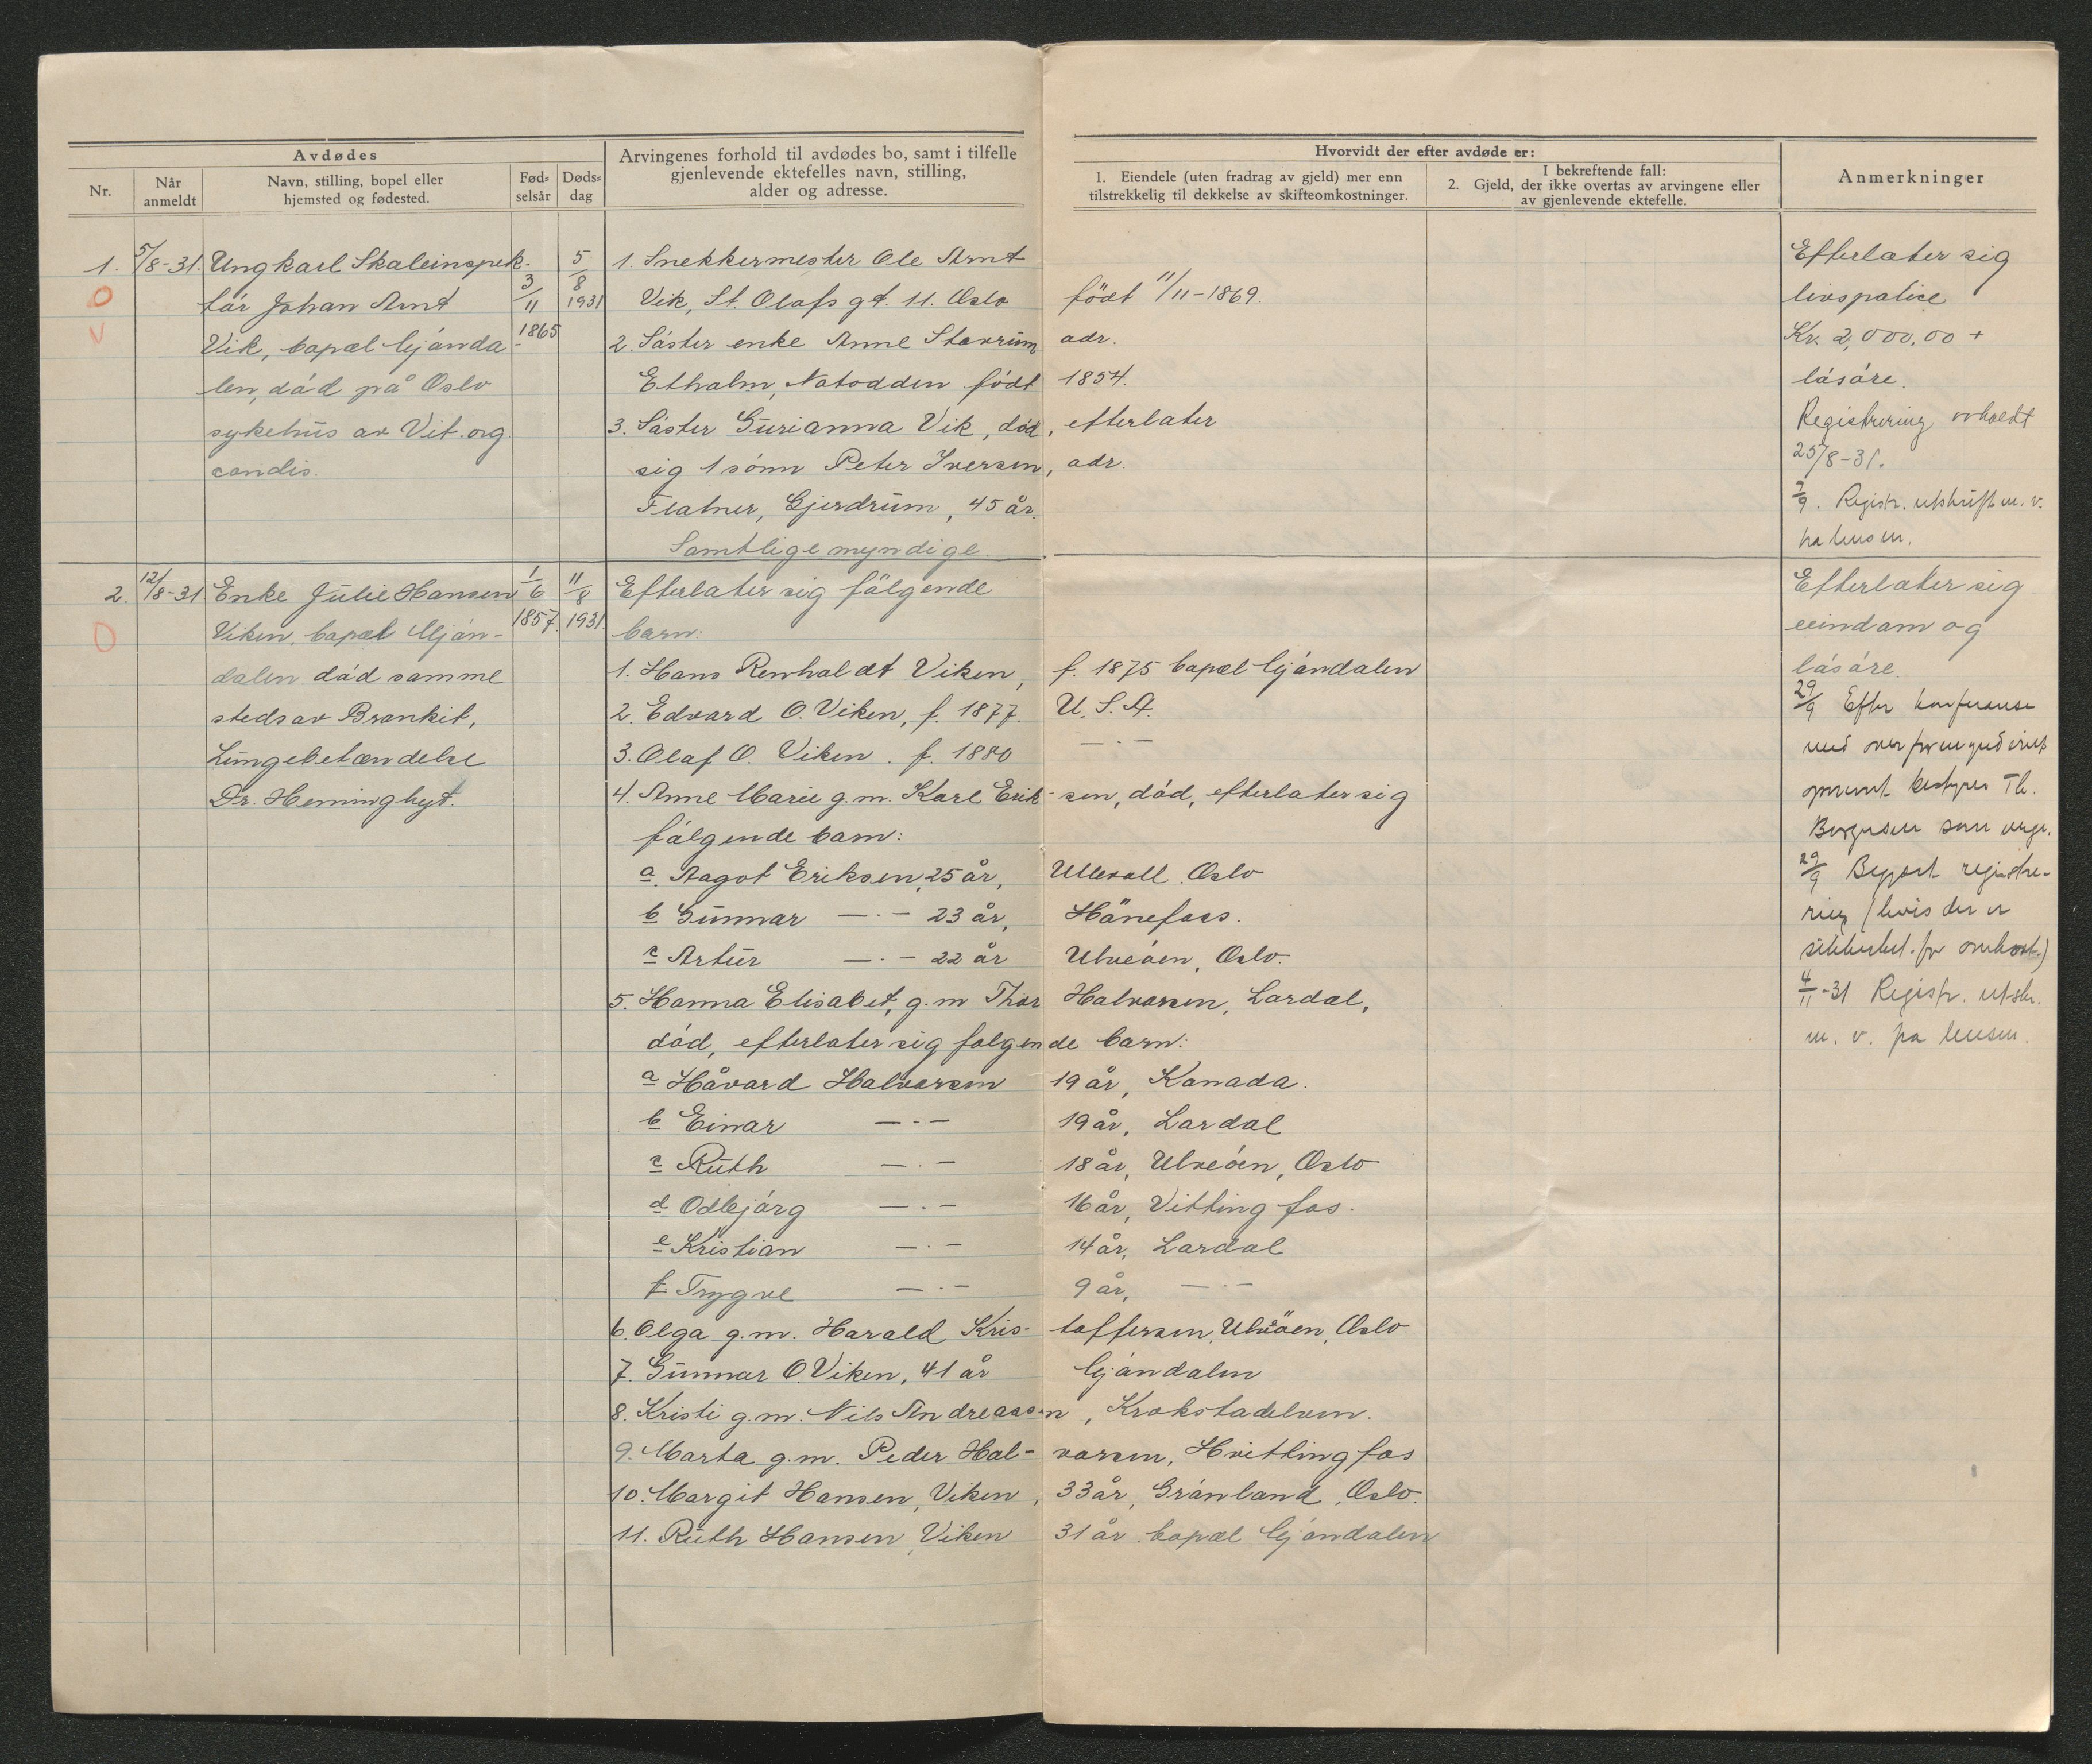 Avdødes
Nr.
Når anmeldt
Navn, stilling, bopel eller hjemsted og fødested.
Fød-selsår
Døds-dag
Arvingenes forhold til avdødes bo, samt i tilfelle
gjenlevende ektefelles navn, stilling,
alder og adresse.
Hvorvidt der efter avdøde er:
1. Eiendele (uten fradrag av gjeld) mer enn
tilstrekkelig til dekkelse av skifteomkostninger.
I bekreftende fall:
2. Gjeld, der ikke overtas av arvingene eller
av gjenlevende ektefelle.
Anmerkninger
1. 5/8-31. Ungkarl Skoleinspek-
tør Johan Arnt
Vik, bopæl Mjønda
len, død på Oslo
sykehus av Vit. org
cordis.
3/11 1865
5/8 1931
1. Snekkermester Ole Arnt
Vik, St. Olafs gt. 11. Oslo født 11/11-1869.
2. Søster enke Anne Stavrum adr.
Etholm, Notodden født 1854.
3. Søster Gurianna Vik, død, efterlater
sig 1 sønn Peter Iversen, adr.
Flatner, Gjerdrum, 45 år.
Samtlige myndige.
Efterlater sig
livspolice
Kr. 2,000,00 +
løsøre.
Registrering avholdt
25/8-31.
2/9. Registr. utskrift m. v.
fra lensm.
2. 12/8-31 Enke Julie Hansen
Viken, bopæl Mjøn-
dalen død samme
steds av Bronkit,
Lungebetændelse
Dr. Heminghyt.
1/6 1857.
11/8 1931.
Efterlater sig følgende
barn:
1. Hans Renholdt Viken, f. 1875 bopæl Mjøndalen
2. Edvard O. Viken, f. 1877. U. S. A.
3. Olaf O. Viken. f. 1880 —.—
4. Anne Marie g. m. Karl Erik-sen, død, efterlater sig
følgende barn:
a. Aagot Eriksen, 25 år, Ullevoll. Oslo
b Gunnar —.— 23 år, Hönefoss.
c Artur —.— 22 år Ulveøen, Oslo.
5. Hanna Elisabet, g. m Thor Halvorsen, Lardal,
død, efterlater sig folgende barn:
a Håvard Halvorsen 19 år, Kanada.
b Einar —.— 19 år, Lardal
c Ruth —.— 18 år, Ulveøen, Oslo
d Odbjørg —.— 16 år, Vitting fos.
e Kristian —.— 14 år, Lardal
f Trygve —.— 9 år, —.—
6. Olga g. m. Harald Kris-toffersen, Ulvöen, Oslo
7. Gunnar O. Viken, 41 år Mjøndalen
8. Kristi g. m. Nils Andreassen, Krokstadelven.
9. Marta g. m. Peder Hal-vorsen, Hvittingfos
10. Margit Hansen, Viken, 33 år, Grønland, Oslo.
11. Ruth Hansen, Viken 31 år bopæl Mjøndalen
Efterlater sig
eiendom og
løsøre.
29/9 Efter konferanse
med overformynderiet
opnevnt Th.
Borgersen som verge.
29/9 Begjært registre-
ring (hvis der er
sikkerhet for omkost.)
4/11-31 Registr. utskr.
m. v. fra lensm.